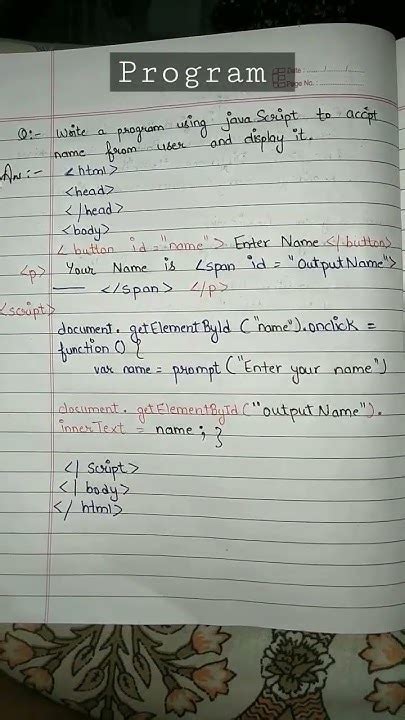 Program
Date : ....../....../......
Page No. : ..................
Q:- Write a program using javaScript to accpt
name from user and display it.
Ans:- <html>
<head>
</head>
<body>
<button id="name"> Enter Name </button>
<p> Your Name is <span id = "outputName">
— </span> </p>
<script>
document. getElementById ("name").onclick =
function () {
var name = prompt ("Enter your name")
document. getElementById ("outputName").
innerText = name ; }
</ script>
</ body>
</ html>